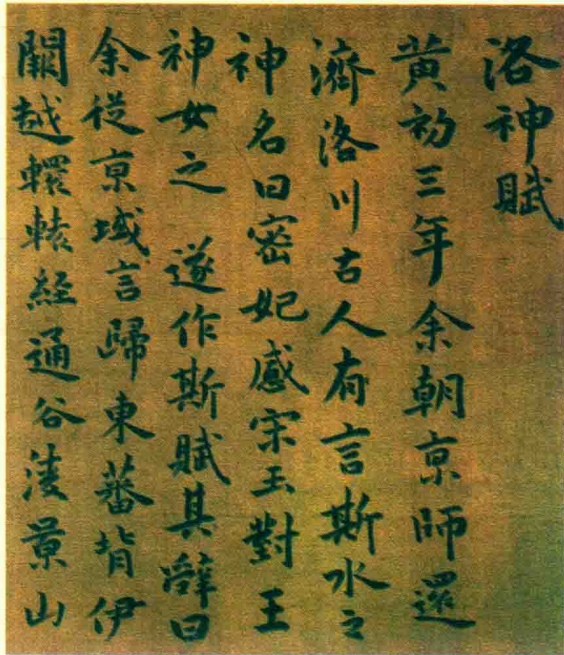 洛神賦
黄初三年余朝京師還
濟洛川古人有言斯水之
神名曰宓妃感宋玉對王
神女之 遂作斯賦其辭曰
余從京域言歸東蕃背伊
闕越轘轅経通谷淩景山